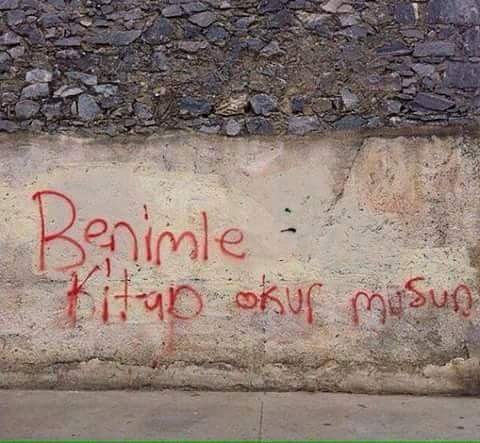 Benimle
Kitap okur musun